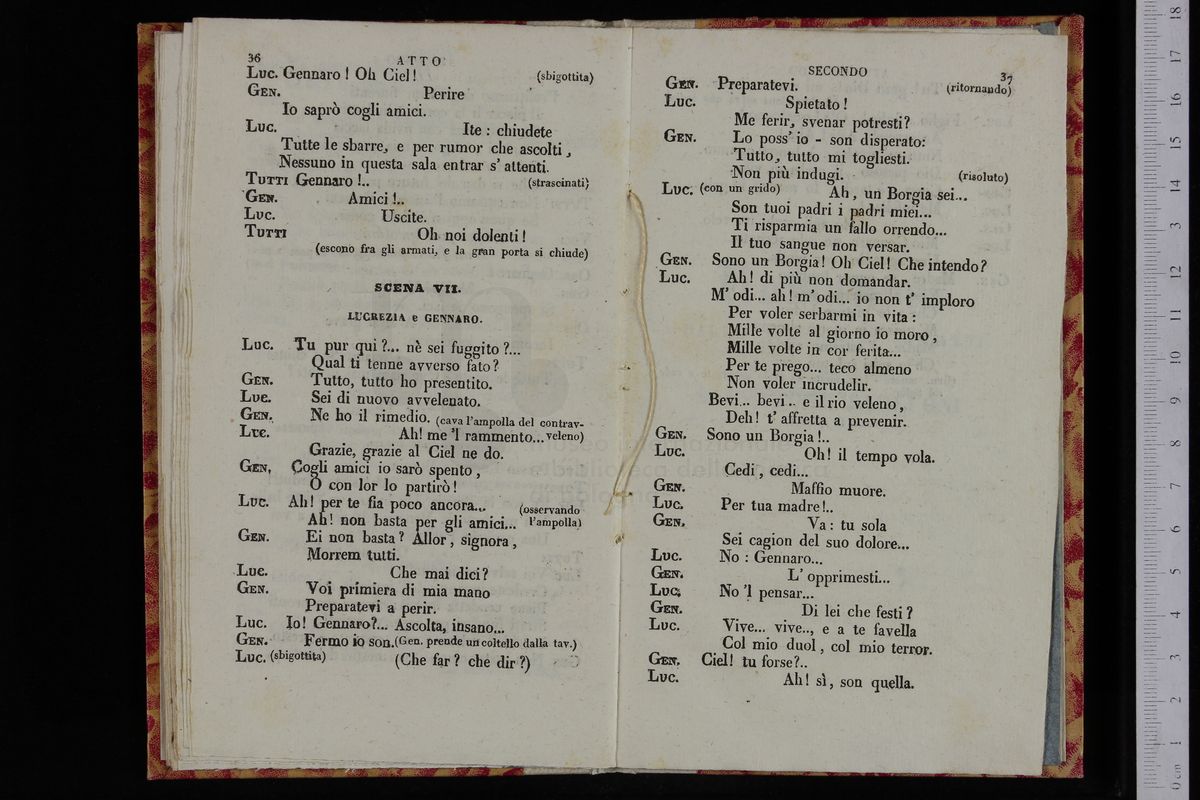 36 ATTO
Luc. Gennaro ! Oh Ciel ! (sbigottita)
Gen. Perire
Io saprò cogli amici.
Luc. Ite : chiudete
Tutte le sbarre, e per rumor che ascolti,
Nessuno in questa sala entrar s' attenti.
Tutti Gennaro !.. (strascinati)
Gen. Amici !..
Luc. Uscite.
Tutti Oh noi dolenti !
(escono fra gli armati, e la gran porta si chiude)
SCENA VII.
LUCREZIA e GENNARO.
Luc. Tu pur qui ?... nè sei fuggito ?...
Qual ti tenne avverso fato ?
Gen. Tutto, tutto ho presentito.
Luc. Sei di nuovo avvelenato.
Gen. Ne ho il rimedio. (cava l'ampolla del contrav-
Luc. Ah! me 'l rammento... veleno)
Grazie, grazie al Ciel ne do.
Gen. Cogli amici io sarò spento,
O con lor lo partirò !
Luc. Ah! per te fia poco ancora... (osservando
Ah! non basta per gli amici... l'ampolla)
Gen. Ei non basta ? Allor, signora,
Morrem tutti.
Luc. Che mai dici ?
Gen. Voi primiera di mia mano
Preparatevi a perir.
Luc. Io! Gennaro?... Ascolta, insano...
Gen. Fermo io son. (Gen. prende un coltello dalla tav.)
Luc. (sbigottita) (Che far ? che dir ?)
SECONDO 37
Gen. Preparatevi. (ritornando)
Luc. Spietato !
Me ferir, svenar potresti ?
Gen. Lo poss' io - son disperato:
Tutto, tutto mi togliesti.
Non più indugi. (risoluto)
Luc. (con un grido) Ah, un Borgia sei...
Son tuoi padri i padri miei...
Ti risparmia un fallo orrendo...
Il tuo sangue non versar.
Gen. Sono un Borgia ! Oh Ciel ! Che intendo ?
Luc. Ah! di più non domandar.
M' odi... ah! m' odi... io non t' imploro
Per voler serbarmi in vita :
Mille volte al giorno io moro,
Mille volte in cor ferita...
Per te prego... teco almeno
Non voler incrudelir.
Bevi... bevi.. e il rio veleno,
Deh! t' affretta a prevenir.
Gen. Sono un Borgia !..
Luc. Oh! il tempo vola.
Cedi, cedi...
Gen. Maffio muore.
Luc. Per tua madre !..
Gen. Va : tu sola
Sei cagion del suo dolore...
Luc. No : Gennaro...
Gen. L' opprimesti...
Luc. No 'l pensar...
Gen. Di lei che festi ?
Luc. Vive... vive.., e a te favella
Col mio duol, col mio terror.
Gen. Ciel! tu forse ?..
Luc. Ah! sì, son quella.